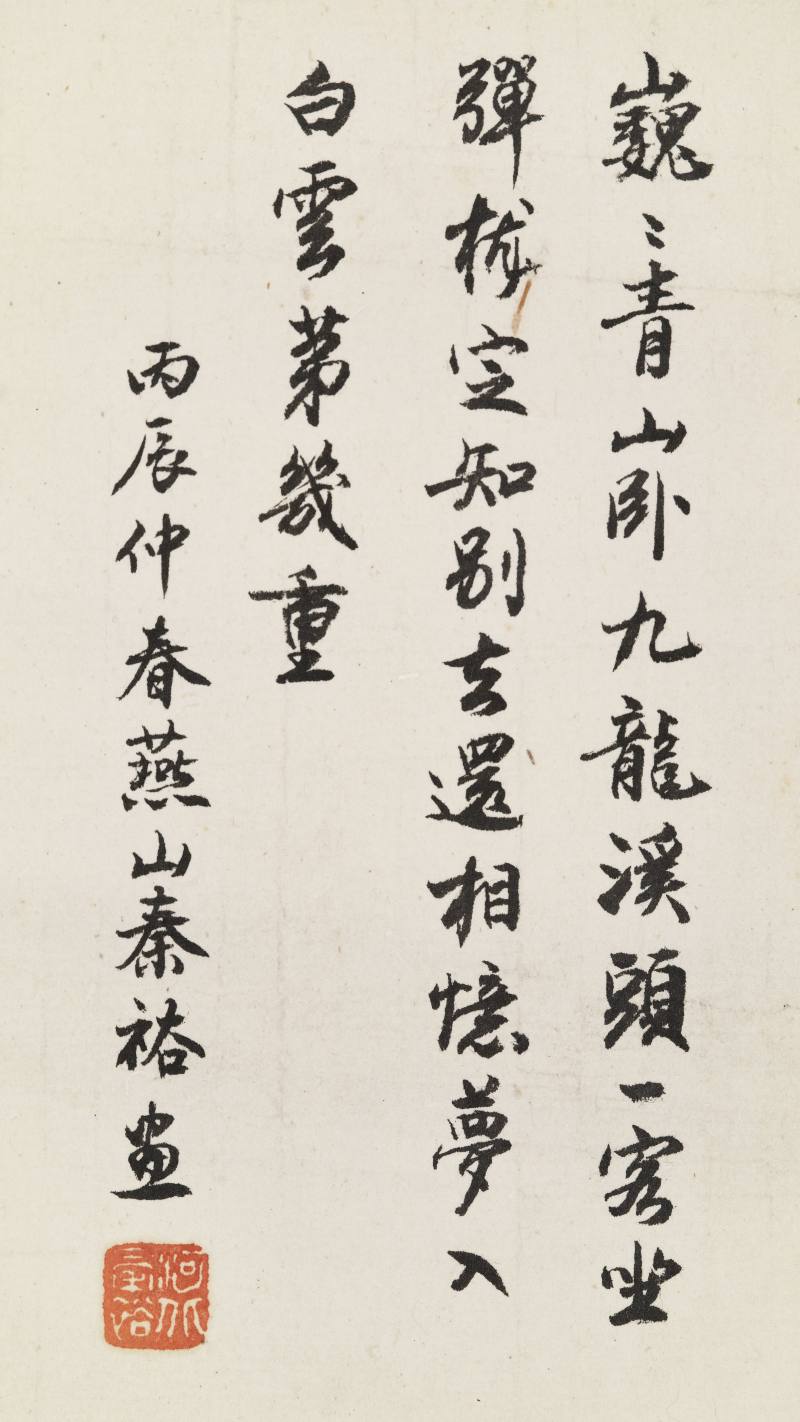 巍〻青山卧九龍溪頭一客坐
彈定知別去還相憶夢入
白雲第幾重
丙辰仲春燕山秦裕畫